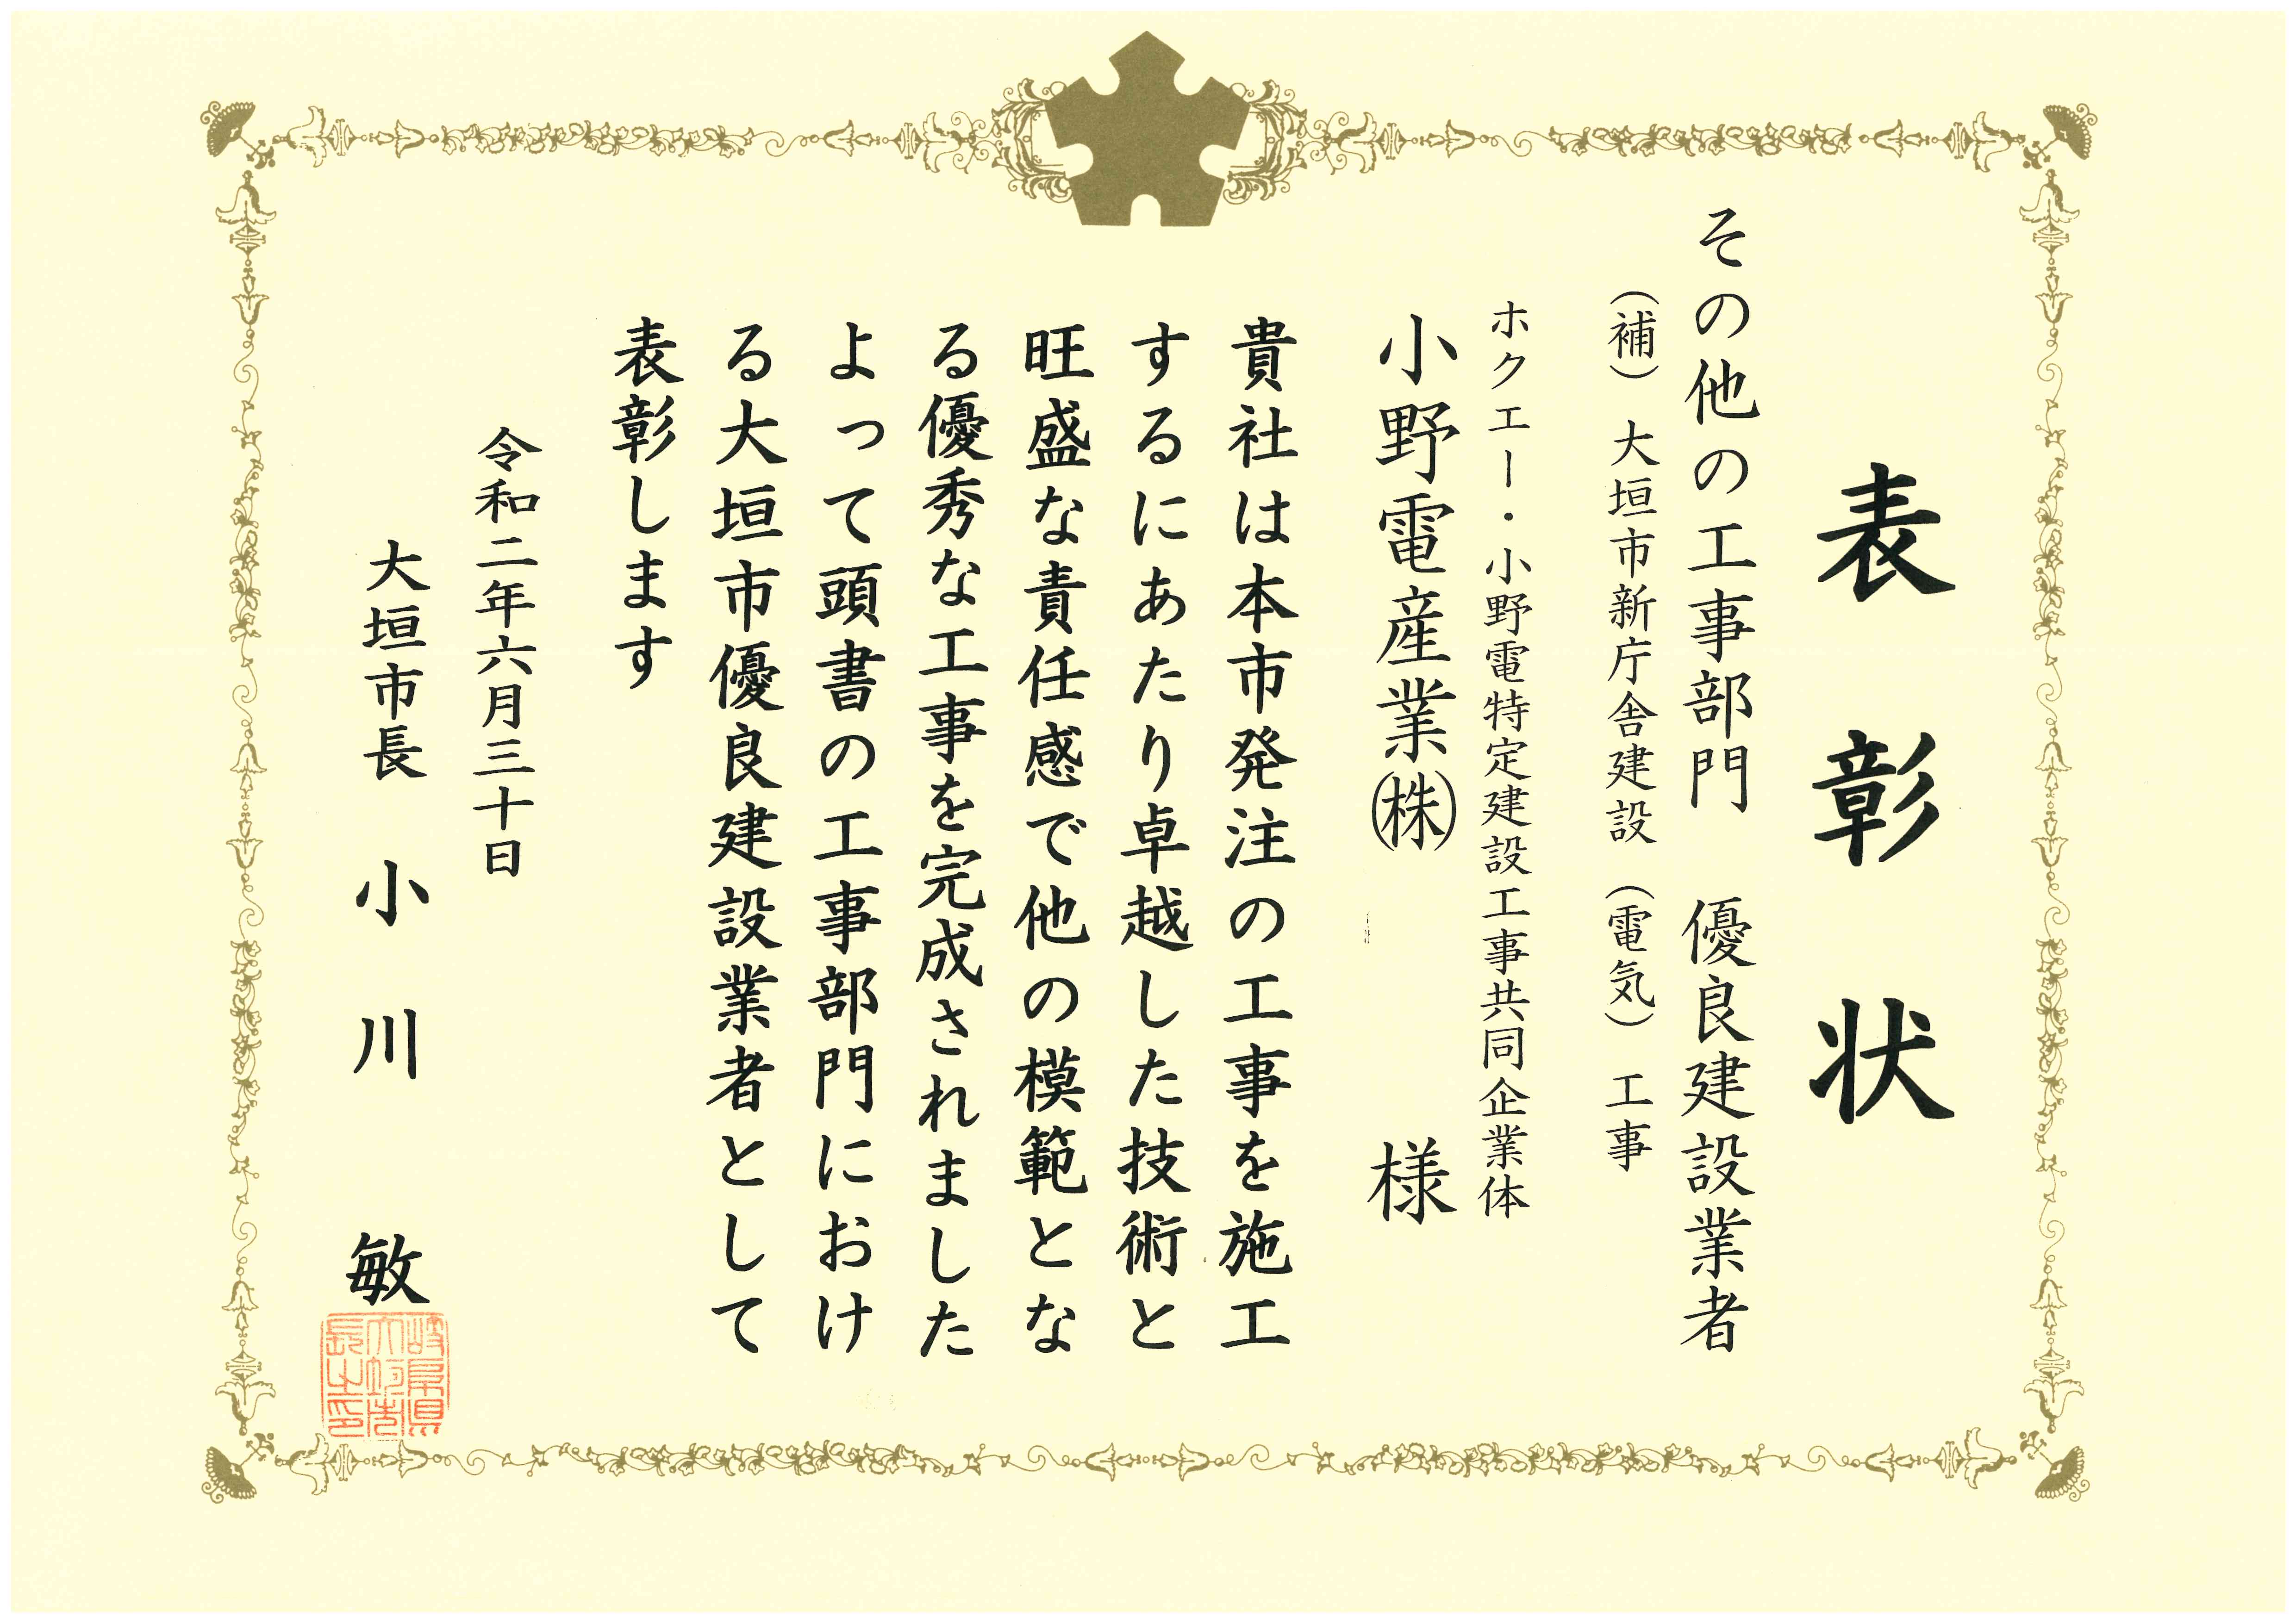 表彰状
その他の工事部門　優良建設業者
（補）　大垣市新庁舎建設　（電気）　工事
ホクエー・小野電特定建設工事共同企業体
小野電産業㈱　　　様
貴社は本市発注の工事を施工
するにあたり卓越した技術と
旺盛な責任感で他の模範とな
る優秀な工事を完成されました
よって頭書の工事部門におけ
る大垣市優良建設業者として
表彰します
令和二年六月三十日
大垣市長　小川　敏
岐阜県
大垣市
長之印